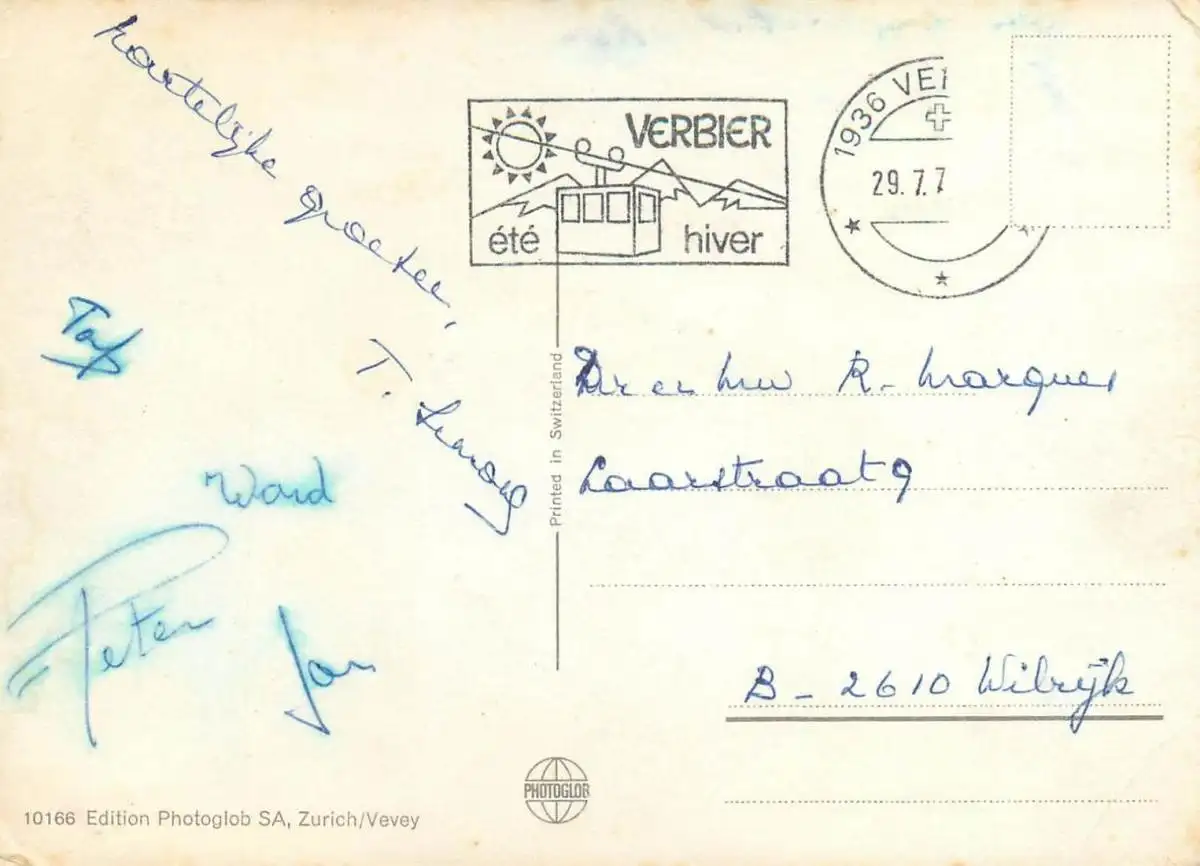 hartelijke groeten,
T.
Ward
Peter
Jan
VERBIER
été hiver
1936 VE
29.7.7
Dr en Mw R. Marques
Laarstraat 9
B - 2610 Wilrijk
Printed in Switzerland
PHOTOGLOB
10166 Edition Photoglob SA, Zurich/Vevey